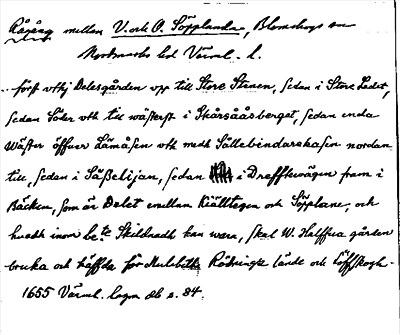 Rågång mellan V. och Ö. Sopplanda, Blomskogs sn
Nordmarks hd Värml. l.
först vthj Delesgården vpp till Store Stenen, sedan i Store Ledet,
sedan Söder vth till wästerst i Skårsååsberget, sedan enda
Wäster öffuer Låmåsen vth medh Sållebindarekasen nordan
till, sedan i Såßelijan, sedan i Drefftewägen fram i
Bäcken, som är Delet emellan Kiälltegen och Söplane, och
huadh inom be.te Skildnadh kan wara, skal W. Halffua gården
bruka och häffda för Mulebethe Rödningz lände och Löffskogh.
1655 Värml. lagm. db s. 84.